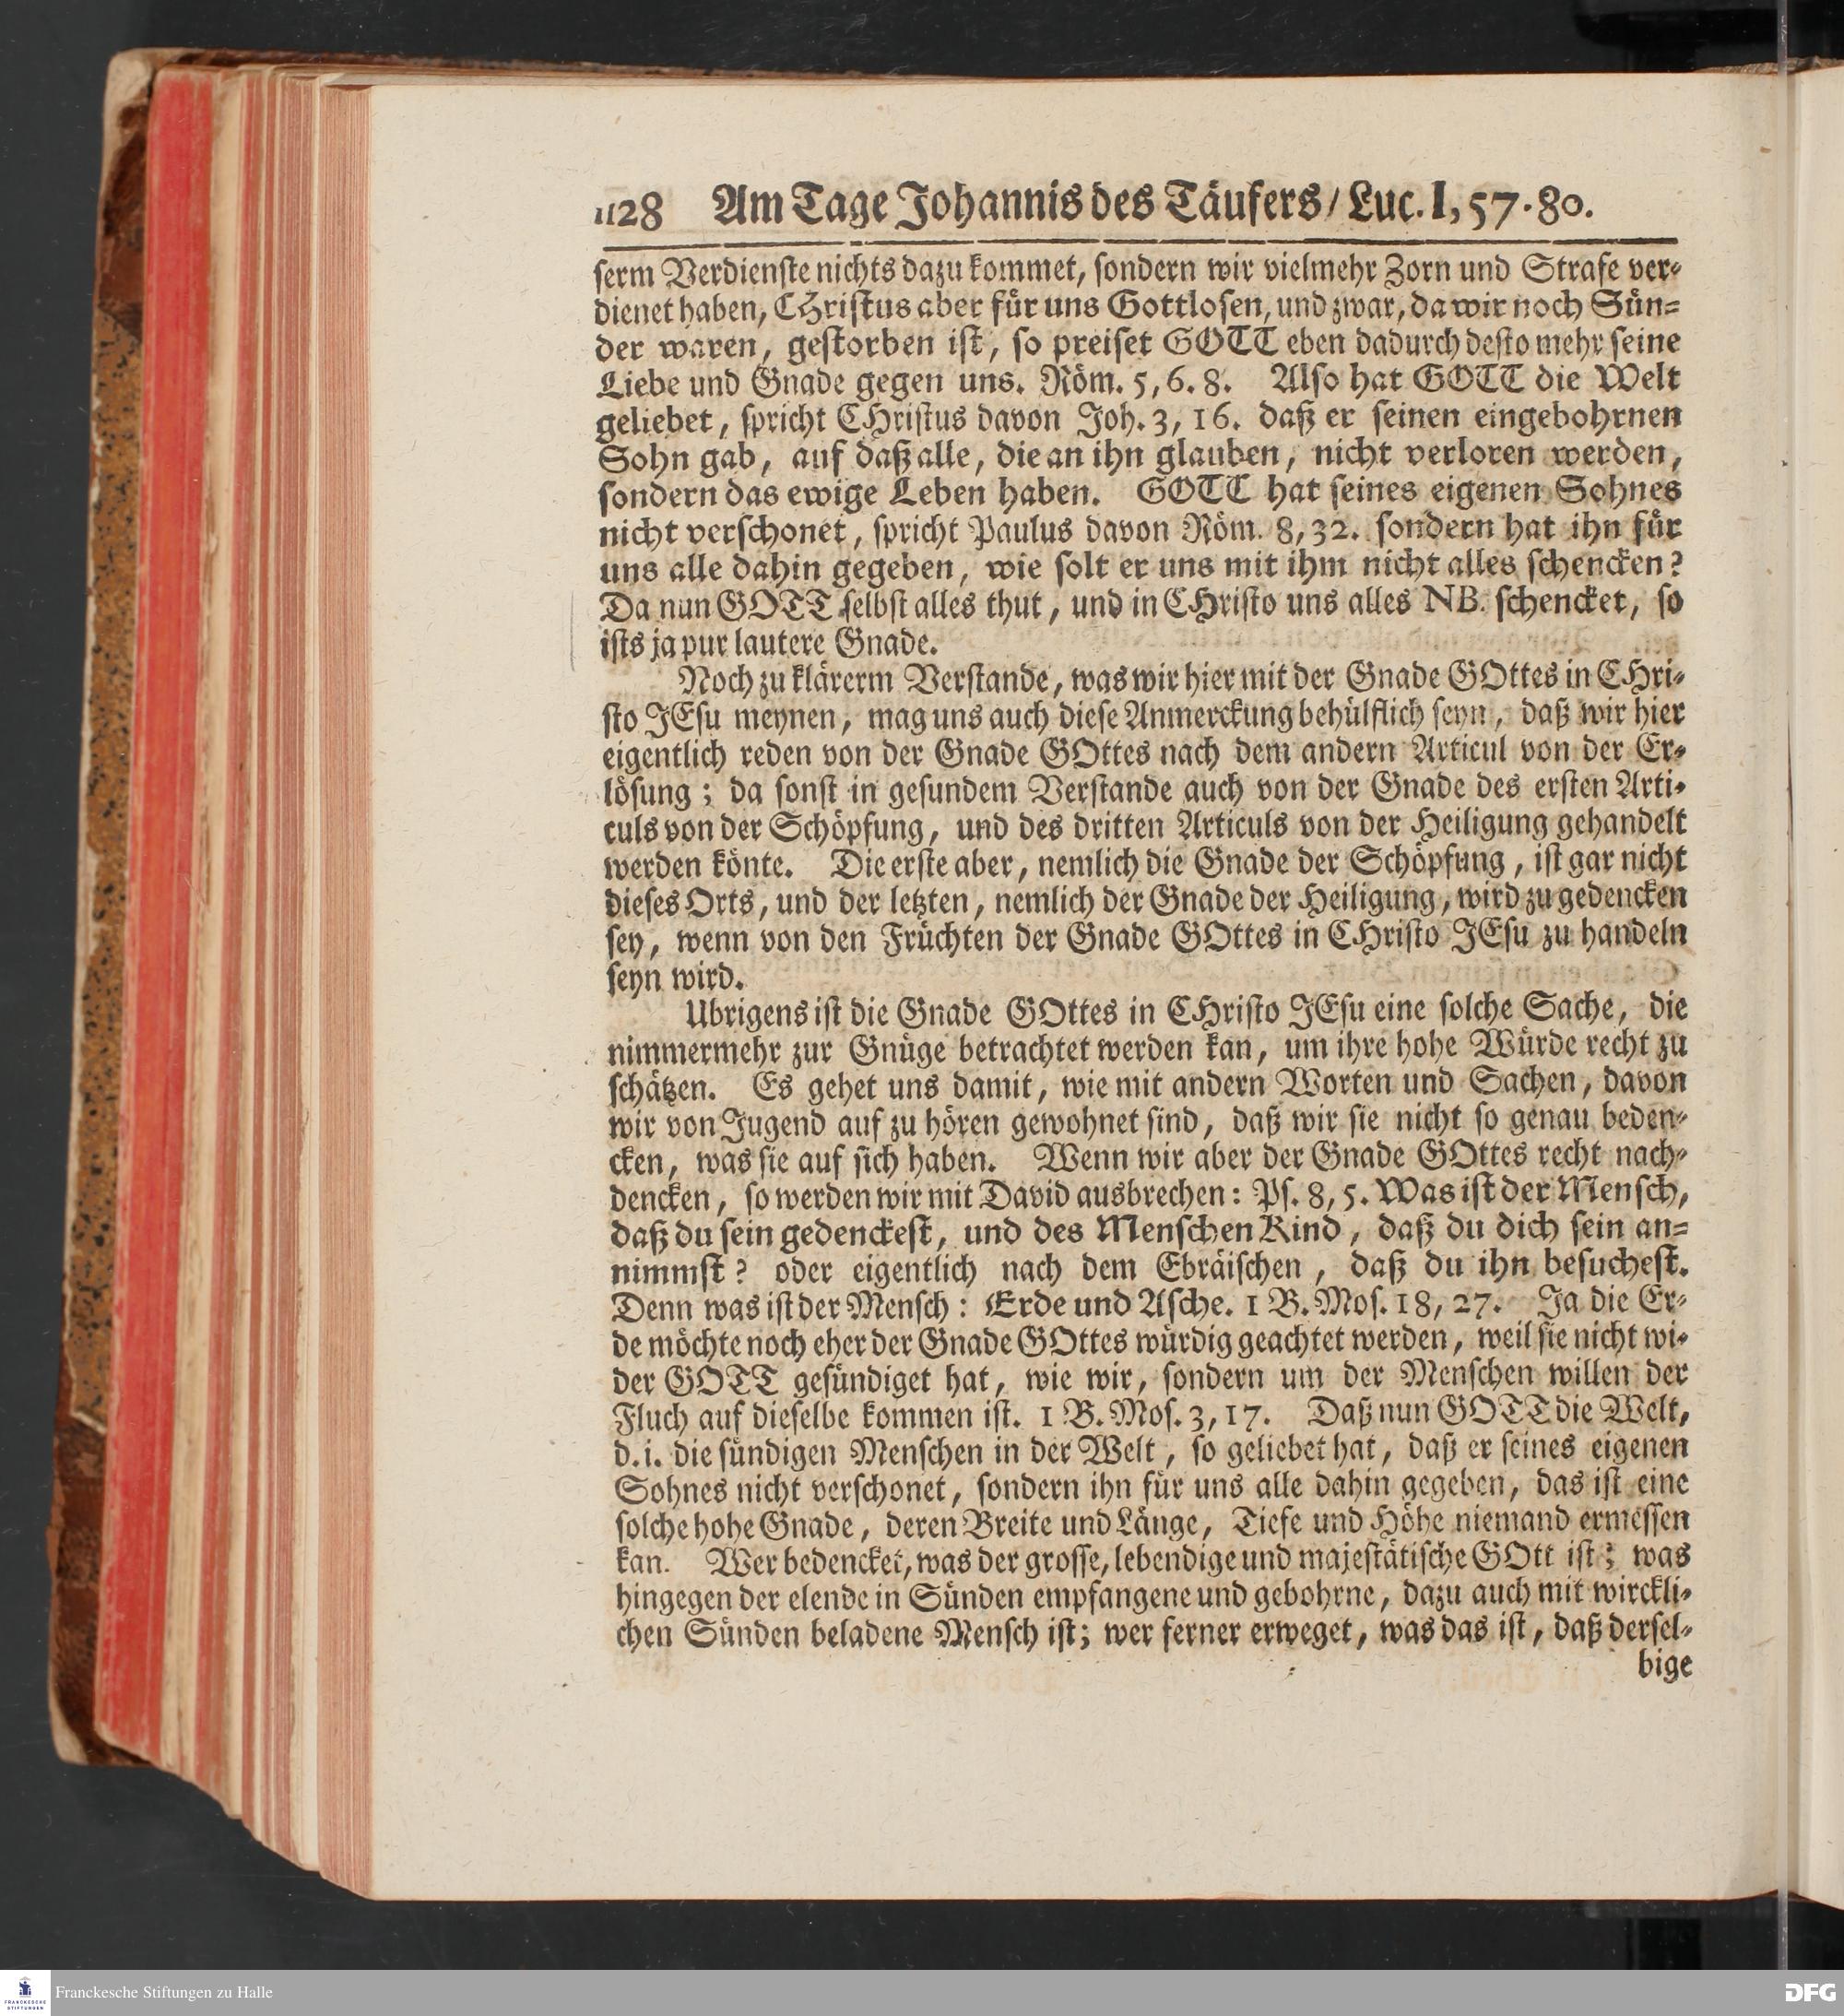 1128 Am Tage Johannis des Täufers/ Luc. I, 57-80.
serm Verdienste nichts dazu kommet, sondern wir vielmehr Zorn und Strafe ver-
dienet haben, CHristus aber für uns Gottlosen, und zwar, da wir noch Sün-
der waren, gestorben ist, so preiset GOTT eben dadurch desto mehr seine
Liebe und Gnade gegen uns. Röm. 5, 6. 8. Also hat GOTT die Welt
geliebet, spricht CHristus davon Joh. 3, 16. daß er seinen eingebohrnen
Sohn gab, auf daß alle, die an ihn glauben, nicht verloren werden,
sondern das ewige Leben haben. GOTT hat seines eigenen Sohnes
nicht verschonet, spricht Paulus davon Röm. 8, 32. sondern hat ihn für
uns alle dahin gegeben, wie solt er uns mit ihm nicht alles schencken?
Da nun GOTT selbst alles thut, und in CHristo uns alles NB. schencket, so
ists ja pur lautere Gnade.
Noch zu klärerm Verstande, was wir hier mit der Gnade GOttes in CHri-
sto JEsu meynen, mag uns auch diese Anmerckung behülflich seyn, daß wir hier
eigentlich reden von der Gnade GOttes nach dem andern Articul von der Er-
lösung; da sonst in gesundem Verstande auch von der Gnade des ersten Arti-
culs von der Schöpfung, und des dritten Articuls von der Heiligung gehandelt
werden könte. Die erste aber, nemlich die Gnade der Schöpfung, ist gar nicht
dieses Orts, und der letzten, nemlich der Gnade der Heiligung, wird zu gedencken
sey, wenn von den Früchten der Gnade GOttes in CHristo JEsu zu handeln
seyn wird.
Ubrigens ist die Gnade GOttes in CHristo JEsu eine solche Sache, die
nimmermehr zur Gnüge betrachtet werden kan, um ihre hohe Würde recht zu
schätzen. Es gehet uns damit, wie mit andern Worten und Sachen, davon
wir von Jugend auf zu hören gewohnet sind, daß wir sie nicht so genau beden-
cken, was sie auf sich haben. Wenn wir aber der Gnade GOttes recht nach-
dencken, so werden wir mit David ausbrechen: Ps. 8, 5. Was ist der Mensch,
daß du sein gedenckest, und des Menschen Kind, daß du dich sein an-
nimmst? oder eigentlich nach dem Ebräischen, daß du ihn besuchest.
Denn was ist der Mensch: Erde und Asche. 1 B. Mos. 18, 27. Ja die Er-
de möchte noch eher der Gnade GOttes würdig geachtet werden, weil sie nicht wi-
der GOTT gesündiget hat, wie wir, sondern um der Menschen willen der
Fluch auf dieselbe kommen ist. 1 B. Mos. 3, 17. Daß nun GOTT die Welt,
d. i. die sündigen Menschen in der Welt, so geliebet hat, daß er seines eigenen
Sohnes nicht verschonet, sondern ihn für uns alle dahin gegeben, das ist eine
solche hohe Gnade, deren Breite und Länge, Tiefe und Höhe niemand ermessen
kan. Wer bedencket, was der grosse, lebendige und majestätische GOtt ist; was
hingegen der elende in Sünden empfangene und gebohrne, dazu auch mit wirckli-
chen Sünden beladene Mensch ist; wer ferner erweget, was das ist, daß dersel-
bige
FRANCKESCHE STIFTUNGEN
Franckesche Stiftungen zu Halle
DFG